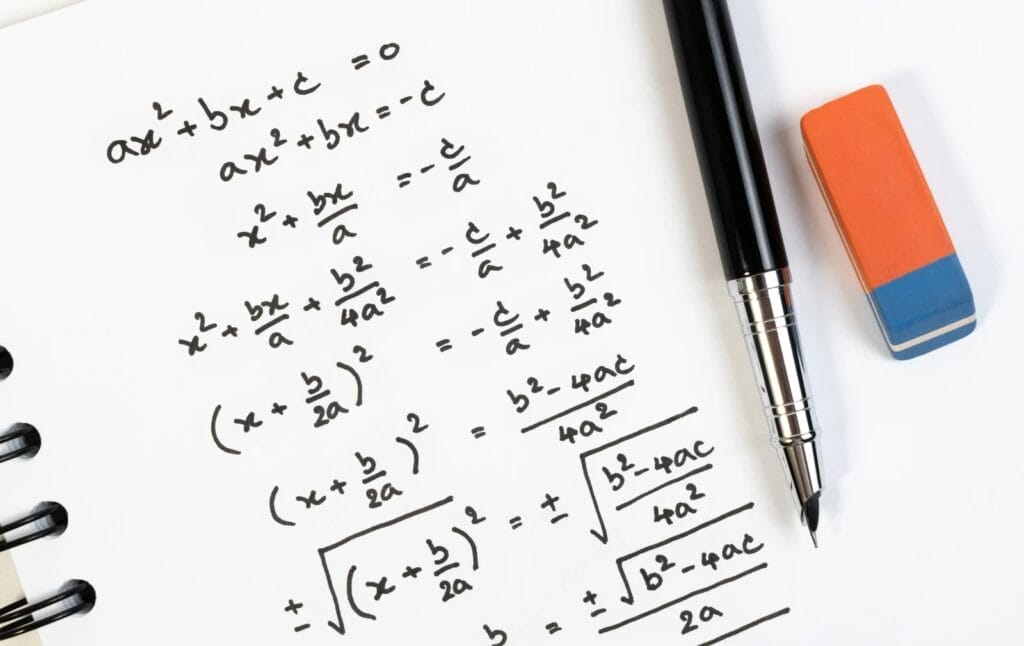 ax² + bx + c = 0
ax² + bx = -c
x² + bx/a = -c/a
x² + bx/a + b²/4a² = -c/a + b²/4a²
(x + b/2a)² = -c/a + b²/4a²
(x + b/2a)² = b² - 4ac/4a²
±√(x + b/2a)² = ±√b² - 4ac/4a²
b = ±√b² - 4ac/2a